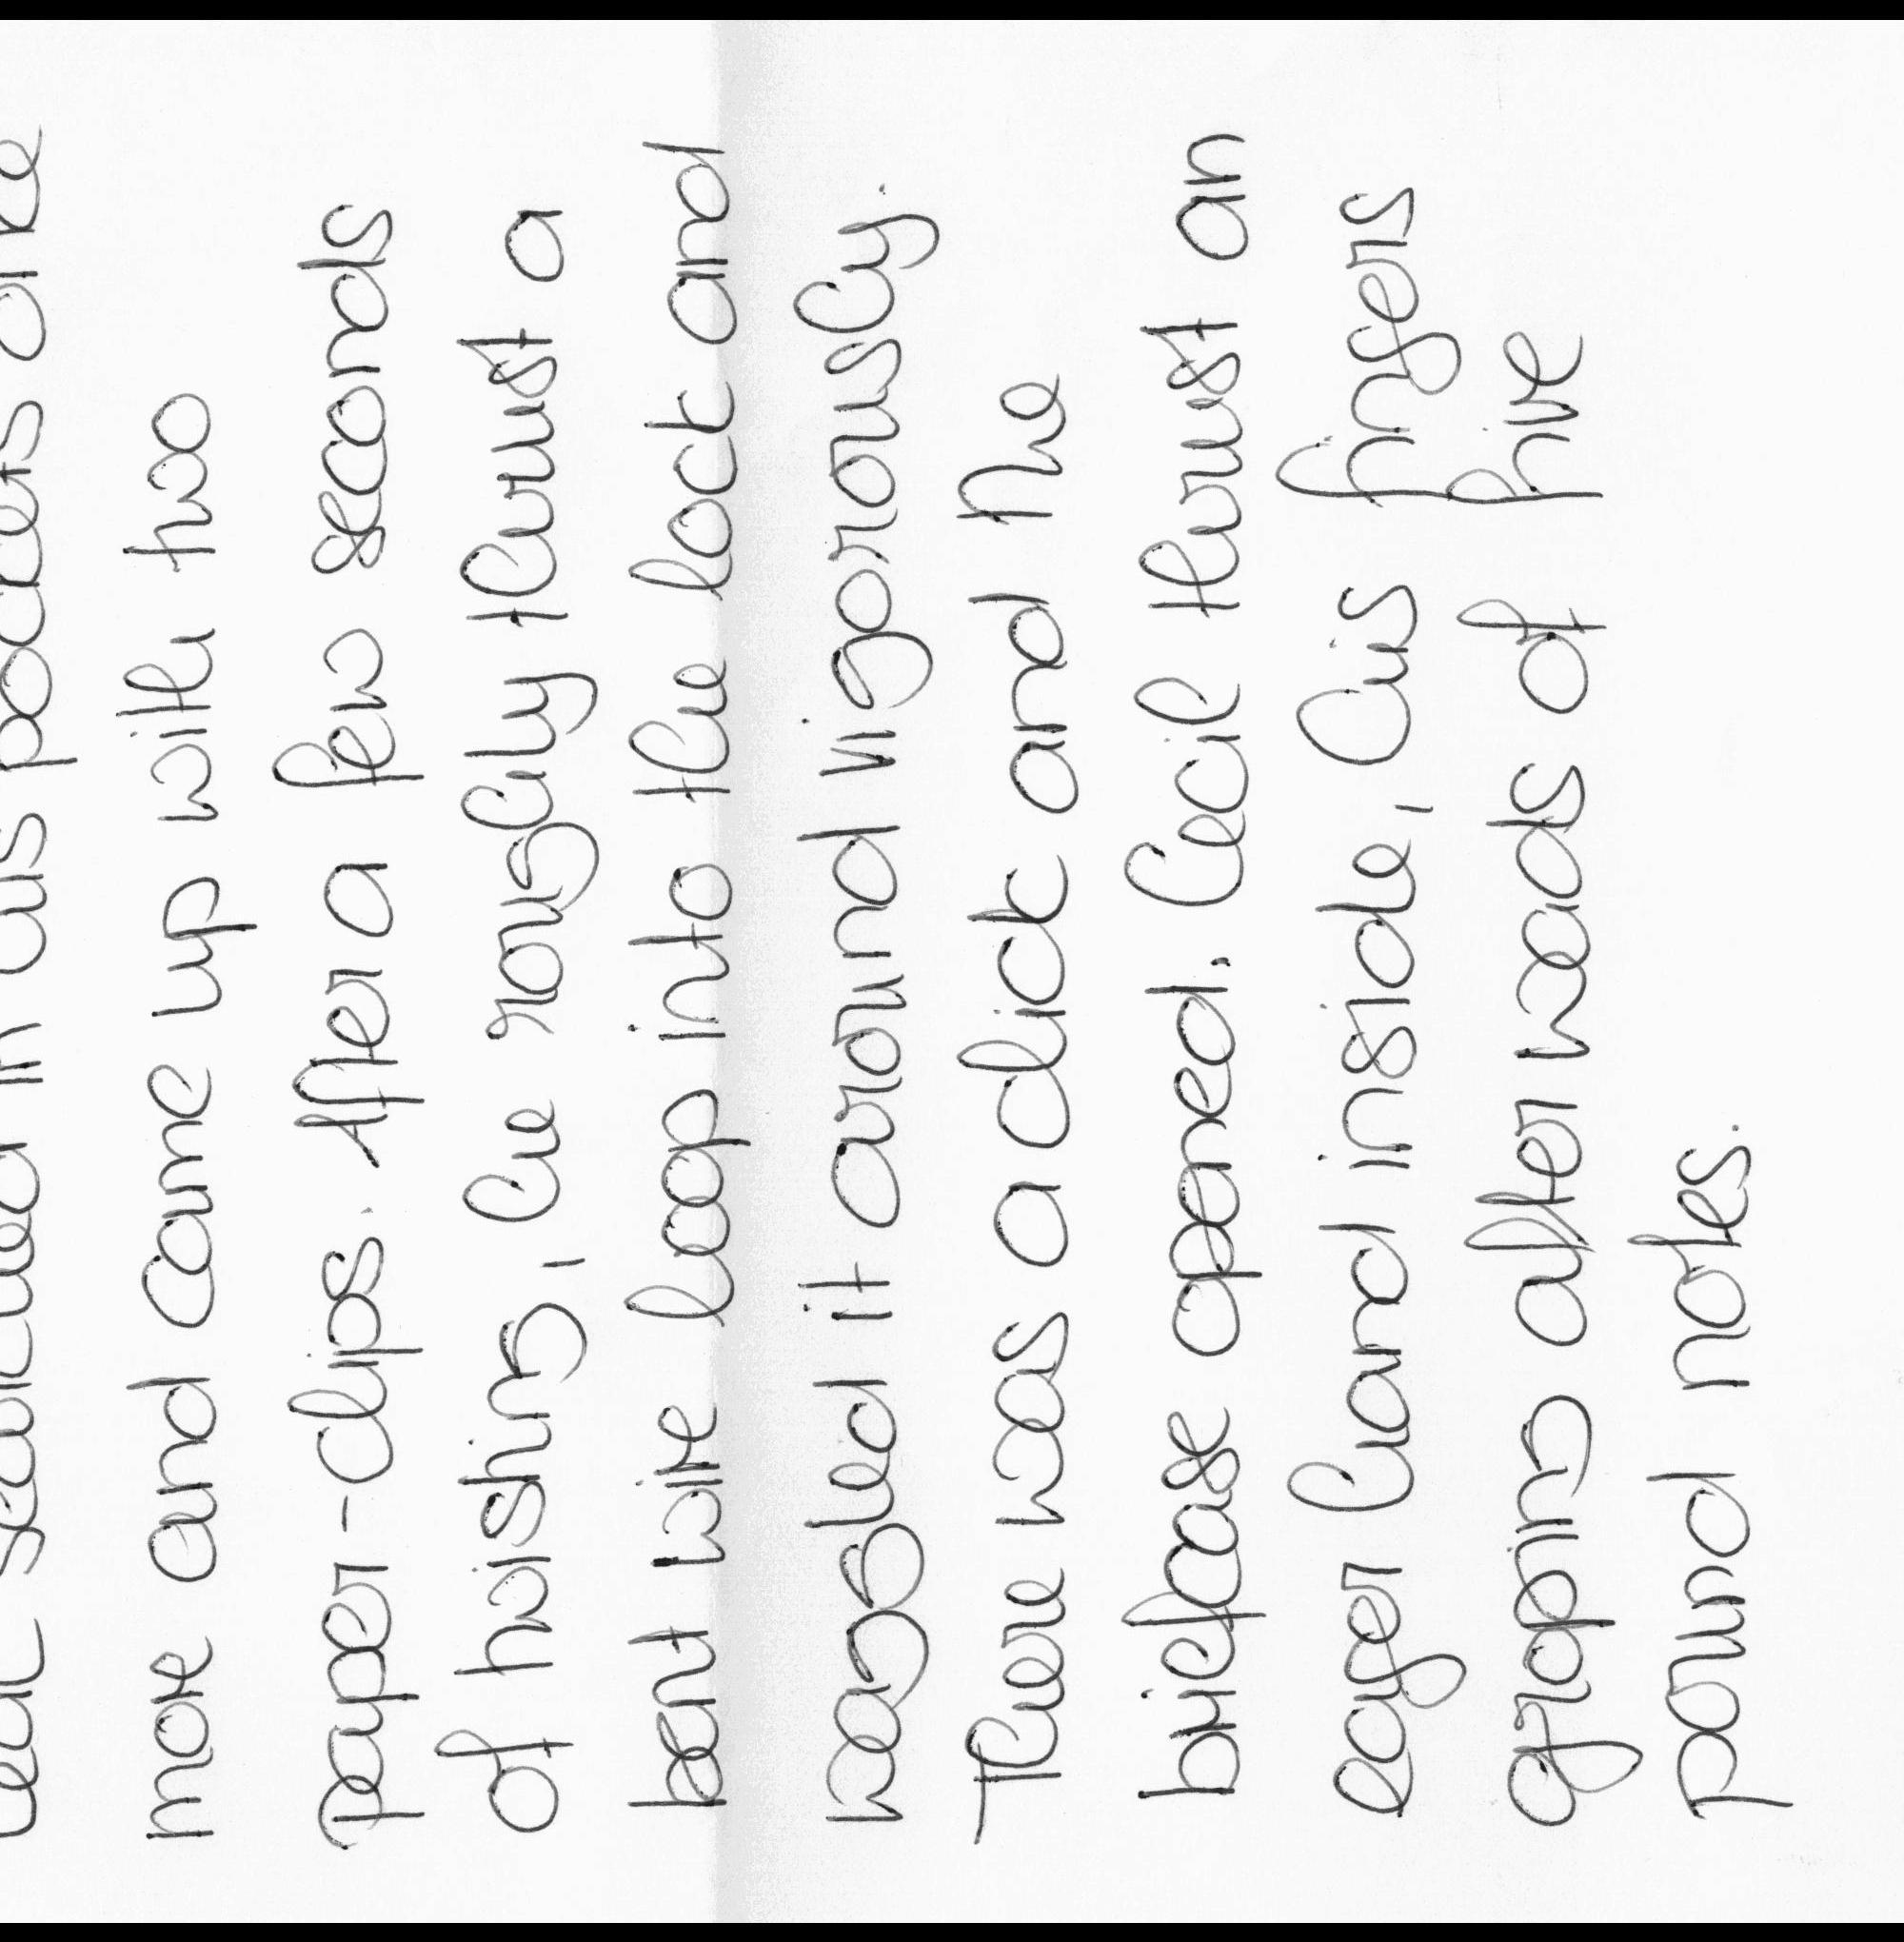 searched in his pockets once
more and came up with two
paper-clips. After a few seconds
of twisting, he roughly thrust a
bent wire loop into the lock and
waggled it around vigorously.
There was a click and the
briefcase opened. Cecil thrust an
eager hand inside, his fingers
groping after wads of five
pound notes.